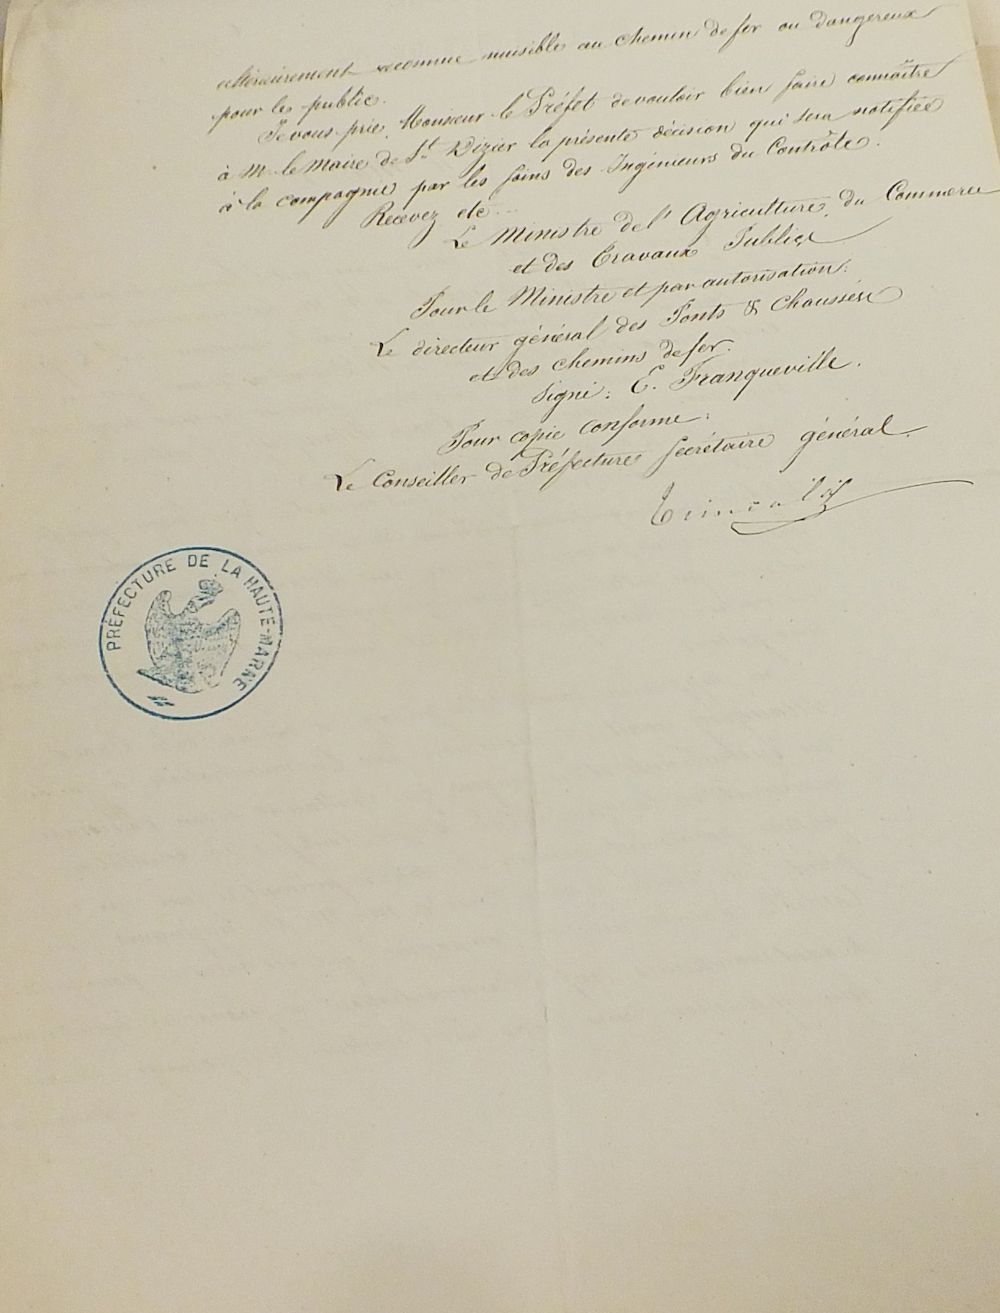 ultérieurement reconnue nuisible au chemin de fer ou dangereux
pour le public.
Je vous prie, Monsieur le Préfet de vouloir bien faire connaître
à M. le Maire de St. Dizier la présente décision qui sera notifiée
à la compagnie par les soins des Ingénieurs du Contrôle.
Recevez etc...
Le Ministre de l'Agriculture, du Commerce
et des Travaux Publics
Pour le Ministre et par autorisation:
Le directeur général des Ponts & Chaussées
et des chemins de fer.
Signé: E. Franqueville.
Pour copie conforme:
Le Conseiller de Préfecture secrétaire général.
PRÉFECTURE DE LA HAUTE-MARNE